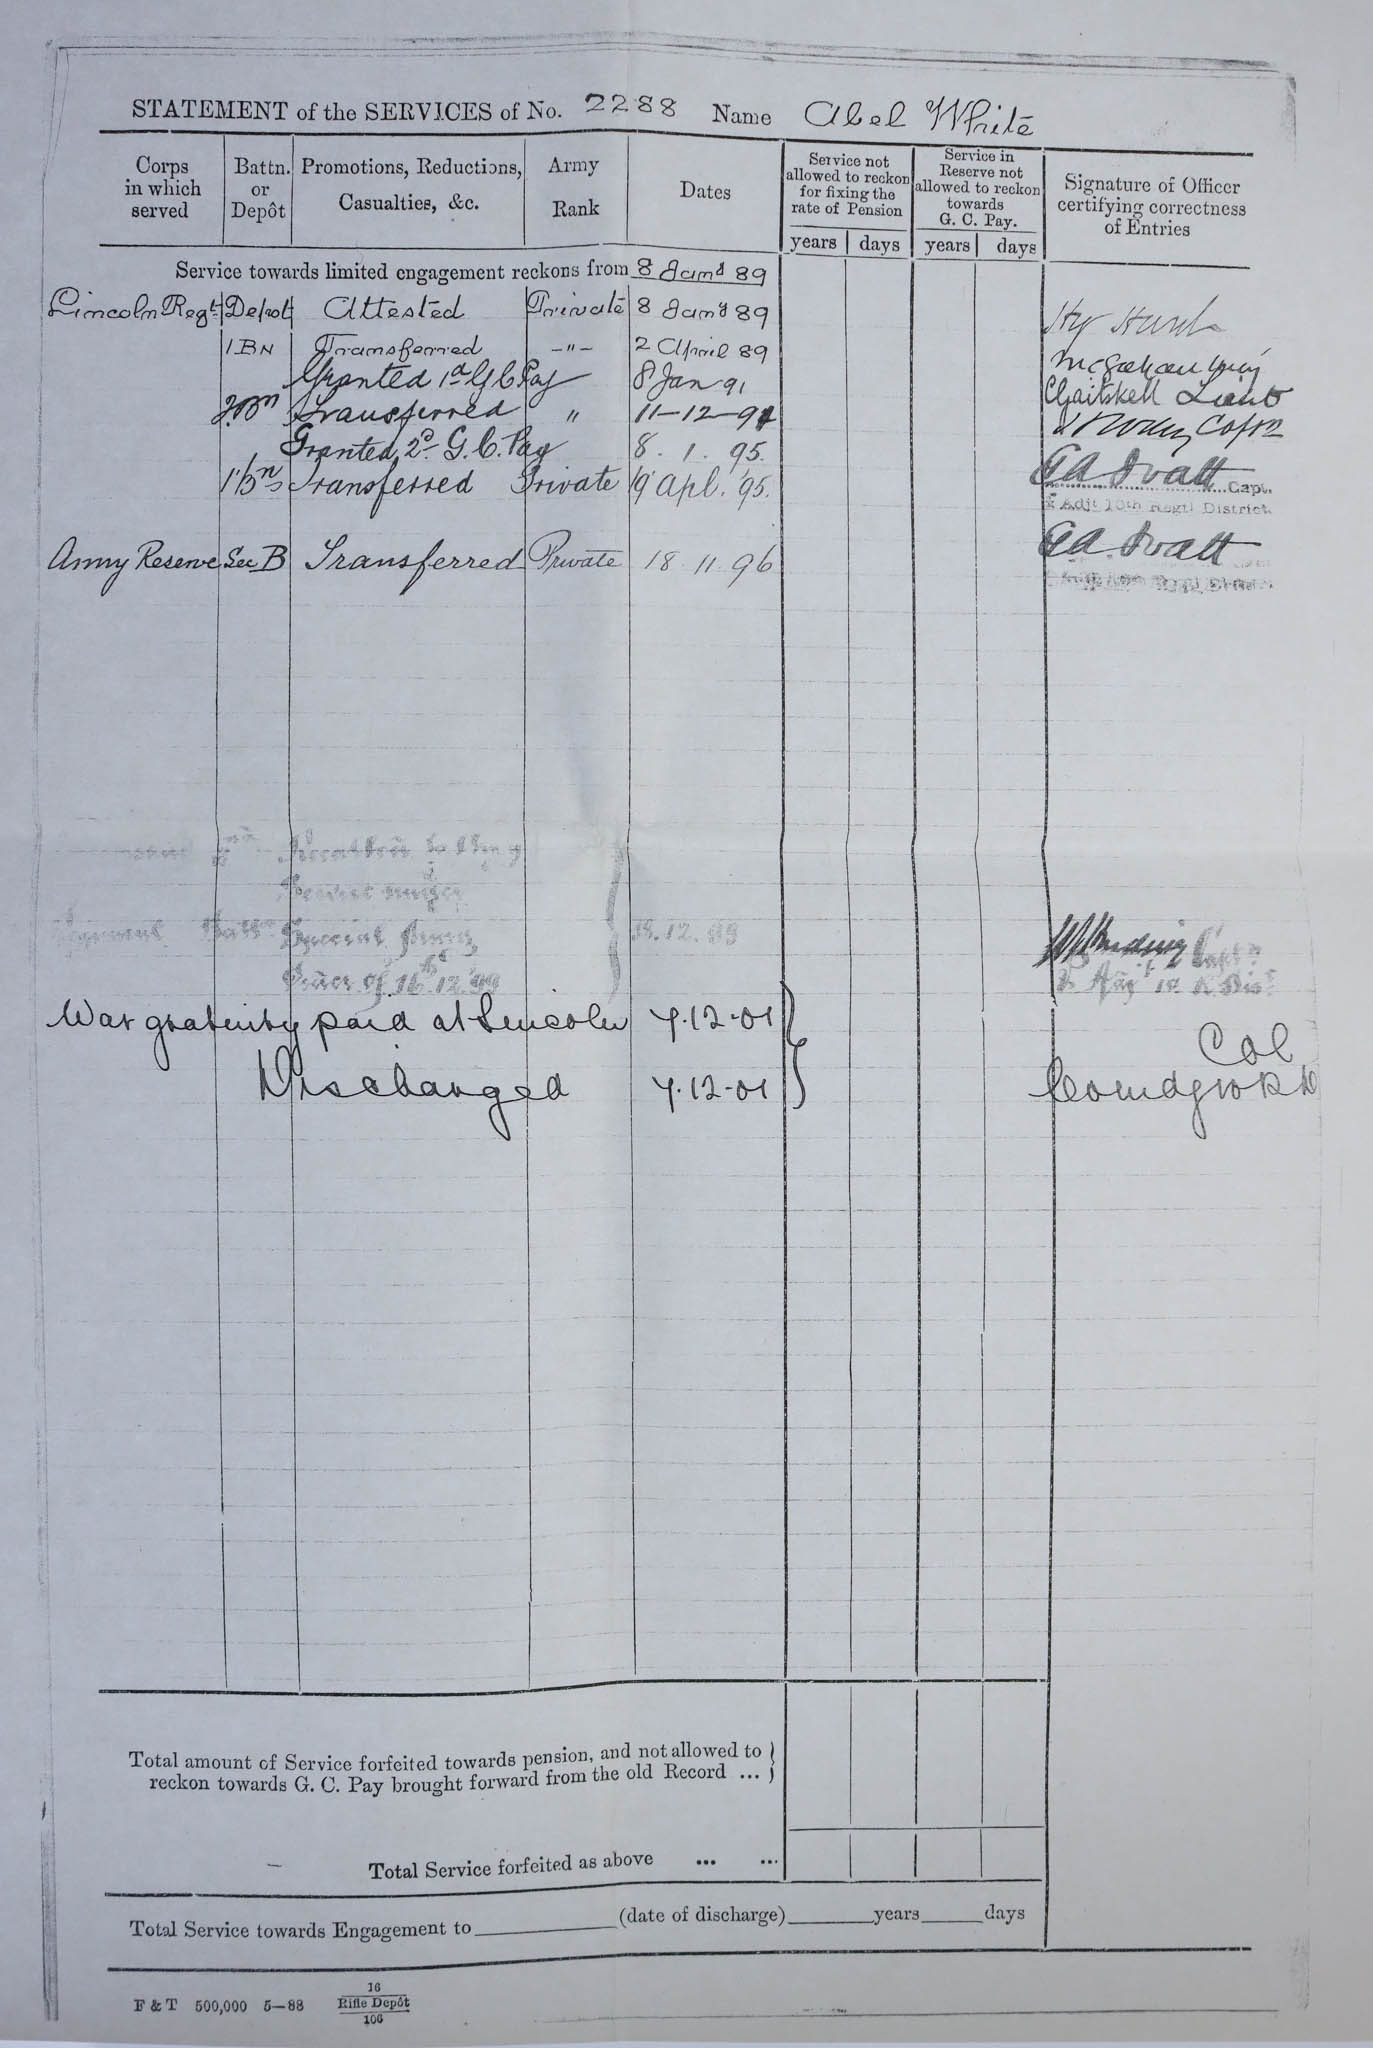 STATEMENT of the SERVICES of No. 2288 Name Abel White
Corps in which served
Battn. or Depôt
Promotions, Reductions, Casualties, &c.
Army Rank
Dates
Service not allowed to reckon for fixing the rate of Pension
Service in Reserve not allowed to reckon towards G. C. Pay.
Signature of Officer certifying correctness of Entries
years days years days
Service towards limited engagement reckons from 8 Jany 89
Lincoln Regt Depot Attested Private 8 Jany 89
1 BN Transferred -"- 2 April 89
Granted 1st G C Pay 8 Jan 91
2 Bn Transferred " 11-12-91 Capt
Granted 2d G. C. Pay 8. 1. 95.
1 Bn Transferred Private 19 Apl. '95. Capt.
& Adjt 10th Regtl District.
Army Reserve Sec B Transferred Private 18 11 96
Recalled to Army
Service under
Special Army 18.12.99
Order of 16th 12.99
War gratuity paid at Lincoln 7-12-01
Col
Discharged 7-12-01
Total amount of Service forfeited towards pension, and not allowed to
reckon towards G. C. Pay brought forward from the old Record ...
Total Service forfeited as above ... ...
Total Service towards Engagement to (date of discharge) years days
F & T 500,000 5—88 16
Rifle Depôt
106